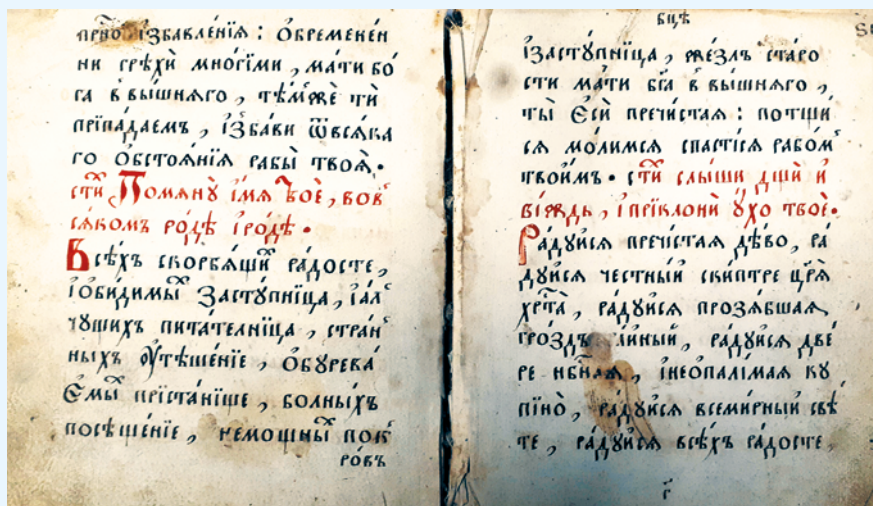 прⷭ҇но і҆збавле́нїѧ : ѻ҆бремене́н
ни грѣхѝ мно́гїми , ма́ти бо́
га в вы́шнѧго , тѣ́мже тѝ
прїпа́даемъ , і҆зба́ви ѿвсѧка
го ѻ҆бстоѧ́нїѧ рабы̀ твоѧ̀ .
сти́х Помѧнꙋ̀ і҆́мѧ твоѐ , вов
сѧ́комъ ро́дѣ і҆ро́дѣ .
Всѣ́хъ скорбѧ́щих ра́досте ,
і҆ѻби́димых Застꙋ́пнїца , і҆а҆л
чꙋщихъ пита́телнїца , стра́н
ныхъ ᲂу҆тѣше́нїе , ѻ҆бꙋрева́
Є҆мых прїста́нїще , бо́лныхъ
посѣще́нїе , не́мощных пок
ро́въ
бцⷣе
і҆засту́пнїца , же́злъ ста́ро
сти ма́ти бг҃а в вы́шнѧго ,
ты̀ Є҆сѝ пречи́стаѧ : потщи́
сѧ мо́лимсѧ спасті́сѧ рабо́м
твои́мъ . сти́х слы́ши дщѝ и҆
ви́ждь , і҆прїклонѝ ᲂу҆́хо твоѐ .
Ра́дꙋйсѧ пречі́стаѧ дѣ́во , ра́
дꙋйсѧ че́стный ски́птре цр҃ѧ̀
хрⷭ҇та̀ , ра́дꙋйсѧ прозѧ́бшаѧ
гро́здъ та́йный , ра́дꙋйсѧ две́
ре нбⷭ҇наѧ , і҆неѻпалі́маѧ кꙋ
пїно̀ , ра́дꙋйсѧ всемі́рный свѣ́
те , ра́дꙋйсѧ всѣ́хъ ра́досте ,